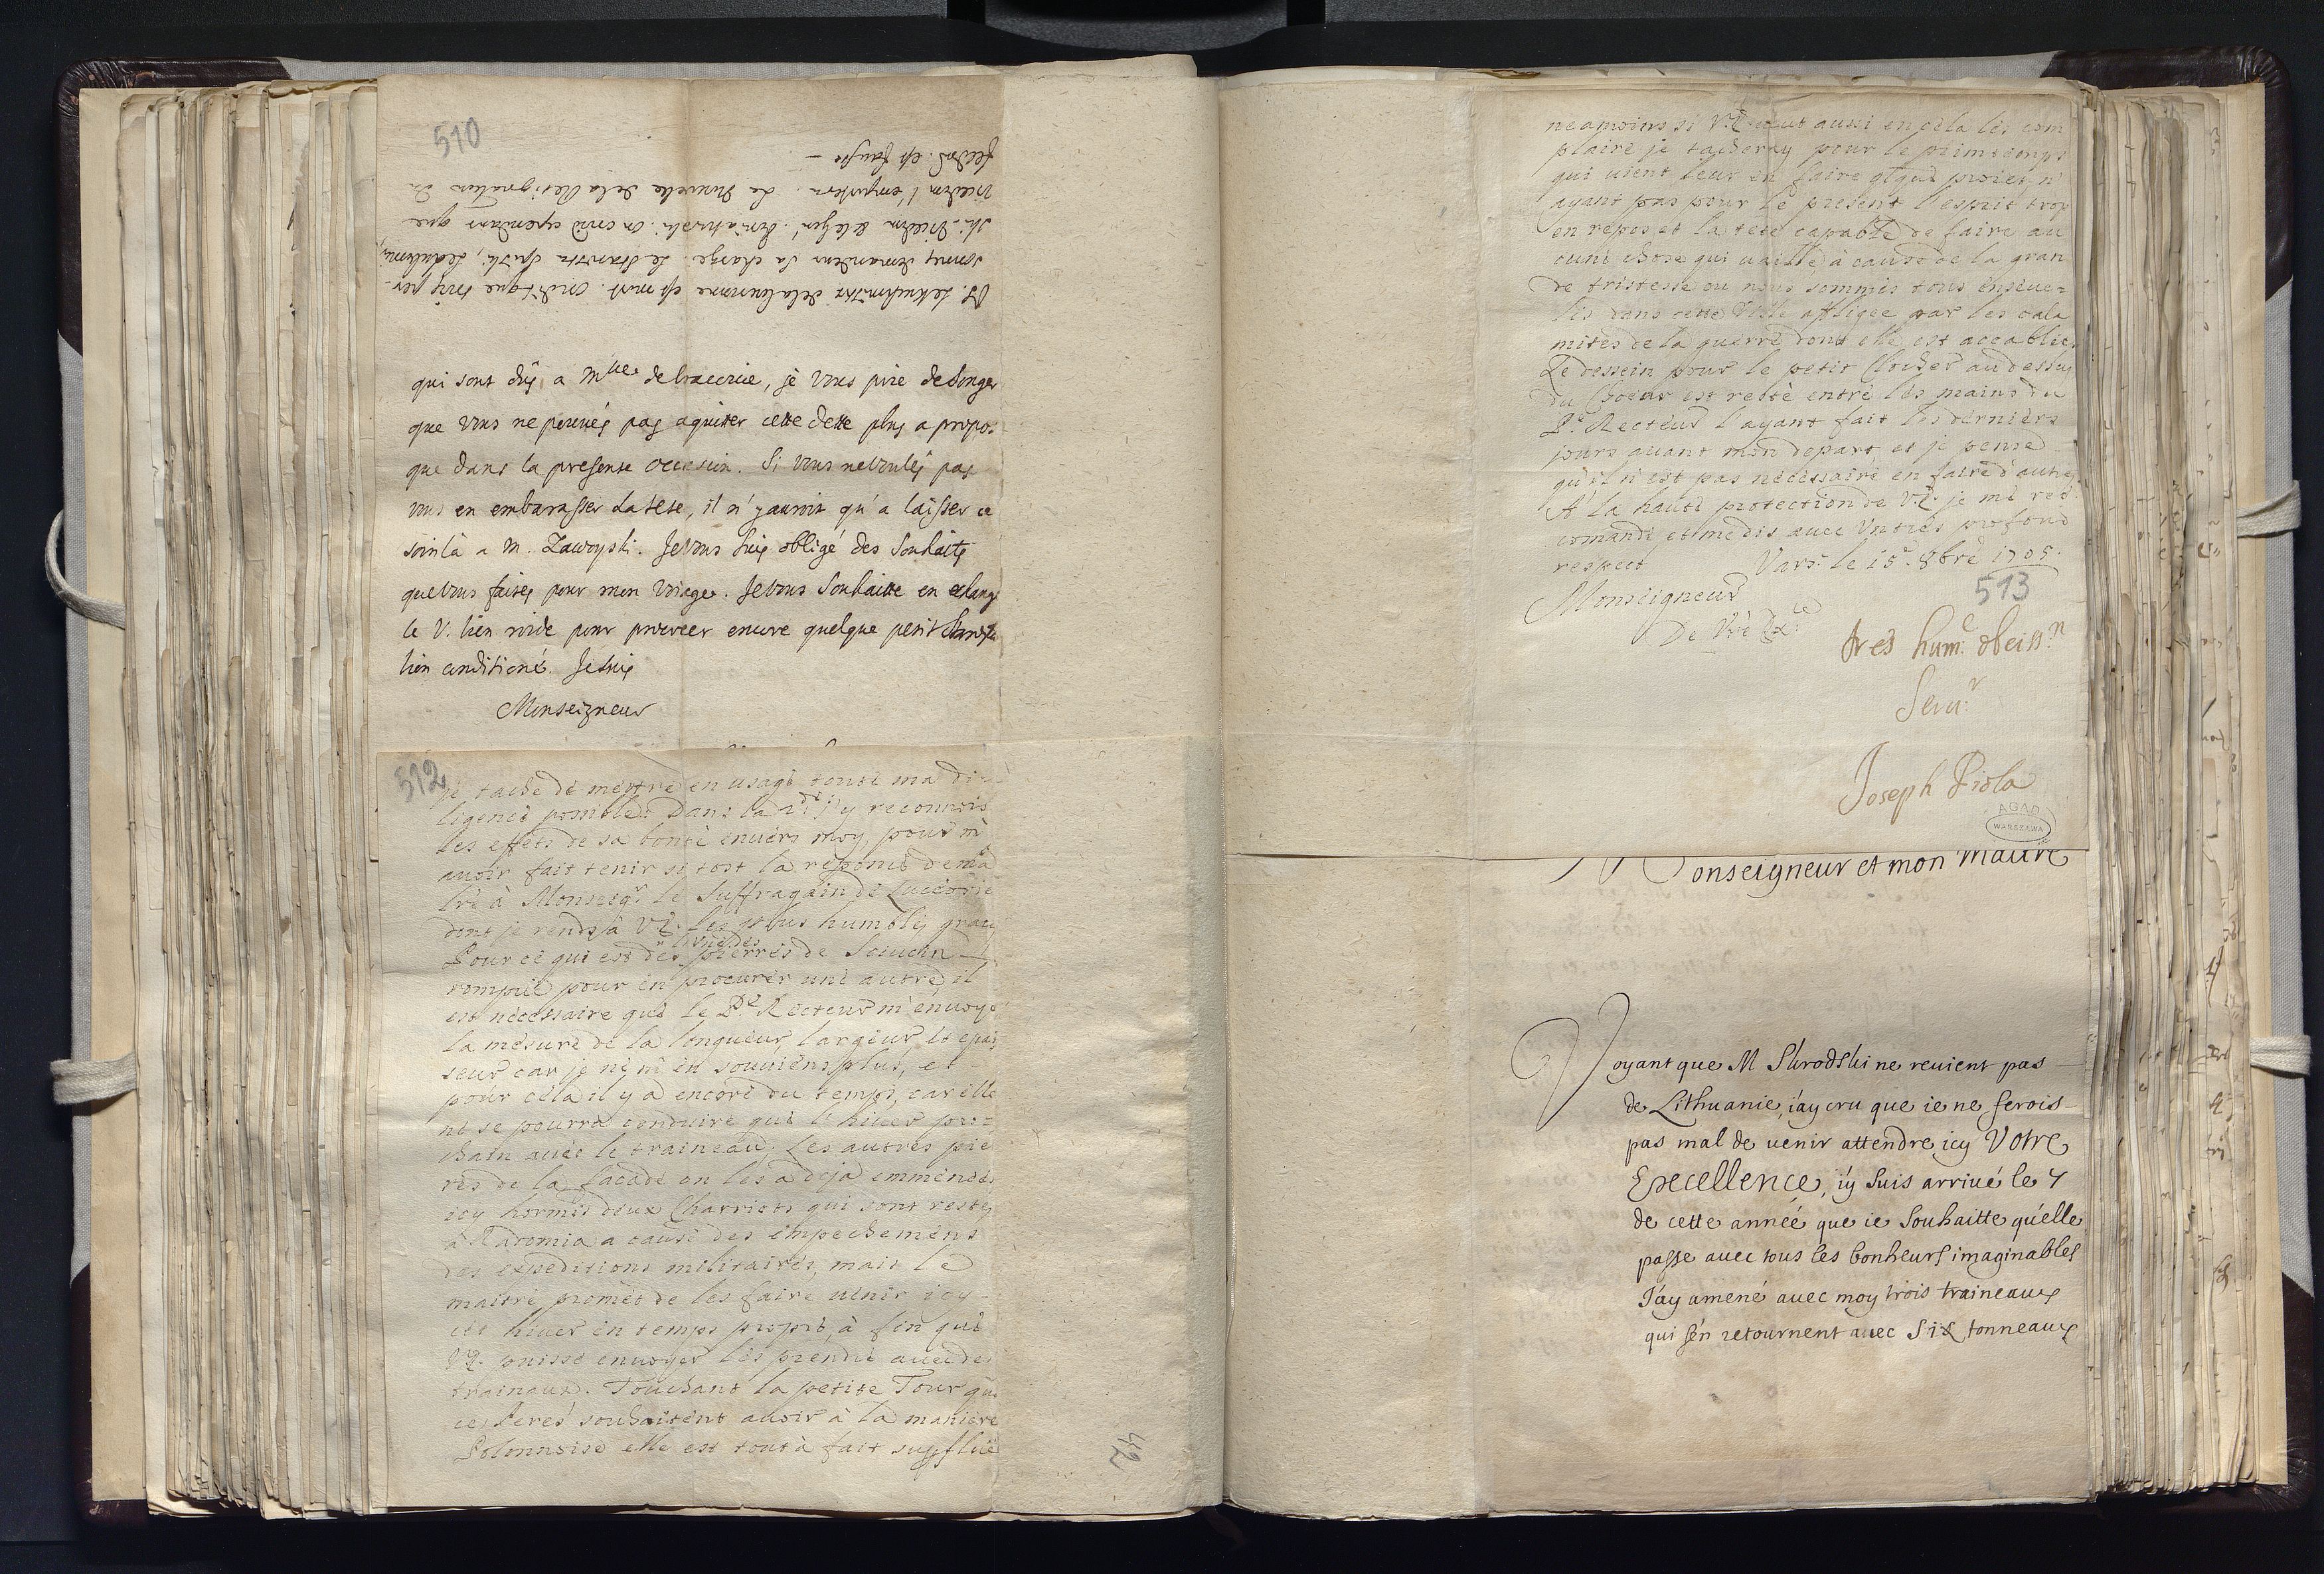 510
P.S. Le Kuchmistr de la Couronne est mort. on dit que trois per-
sonnes demandent sa charge. le Starosta
que
La Nouvelle de la Resignation du
est fausse —
qui sont dûs a Mlle de , je vous prie de songer
que vous ne pouvés pas aquitter cette dette plus a propos
que dans la presente occasion. Si vous ne voulés pas
vous en embarasser la tete, il n'y auroit qu'a laisser ce
soin là a M. Zawoyski. Je vous suis obligé des souhaits
que vous faites pour mon voiage. Je vous souhaitte en echange
le V. bien roide pour procreer encore quelque petit Starosta
bien conditioné. Je suis
Monseigneur
512
je tache de mettre en usage toute ma di-
ligence possible. Dans la 2de j'y reconnois
les effets de sa bonté envers moy, pour m'
avoir fait tenir si tost la reponse de ma
lre à Monseigr le Suffragain de Luceorie
dont je rends à V.E. les plus humbles graces
Pour ce qui est des pierres de
rompue pour en procurer une autre, il
est necessaire que le Pe Recteur m'envoye
la mesure de la longueur, largeur et epais
seur car je ne m'en souviens plus, et
pour cela il y a encore du temps, car elle
ne se pourra conduire que l'hiver pro=
chain avec le traineau. Les autres pie
res de la facade on les a deja emmenées
icy hormis deux Charriots qui sont restés
à Radomia a cause des empechemens
des expeditions militaires, mais le
maitre promet de les faire venir icy
cet hiver en temps propre, à fin que
V.E. puisse envoyer les prendre avec des
trainaux. Touchant la petite Tour que
ces Peres souhaitent avoir à la maniere
Polonnoise elle est tout à fait supflue
42
neamoins si V.E. veut aussi en cela les com
plaire je tacheray pour le printemps
qui vient leur en faire qlque projet, n'
ayant pas pour le present l'esprit trop
en repos et la tete capable de faire au
cune chose qui vaille à cause de la gran
de tristesse ou nous sommes tous enseve=
lis dans cette Ville affligée par les cala
mites de la guerre dont elle est accablée.
Le dessein pour le petit Clocher au dessus
du Choeur est resté entre les mains du
Pe Recteur l'ayant fait les derniers
jours avant mon depart, et je pense
qu'il n'est pas necessaire en faire d'autres
A la haute protection de V.E. je me rec
comande et me dis avec un tres profond
respect Vars: le 15e 8bre 1705.
513
Monseigneur
De Vre Exce
tres hume obeissn
Servr
Joseph Piola
AGAD
WARSZAWA
Monseigneur et mon Maitre
Voyant que M Skrodski ne revient pas
de Lithuanie, j'ay cru que ie ne ferois
pas mal de venir attendre icy Votre
Execellence, i'y suis arrivé le 4
de cette année que ie souhaitte qu'elle
passe avec tous les bonheurs imaginables
J'ay amené avec moy trois traineaux
qui s'en retournent avec six tonneaux